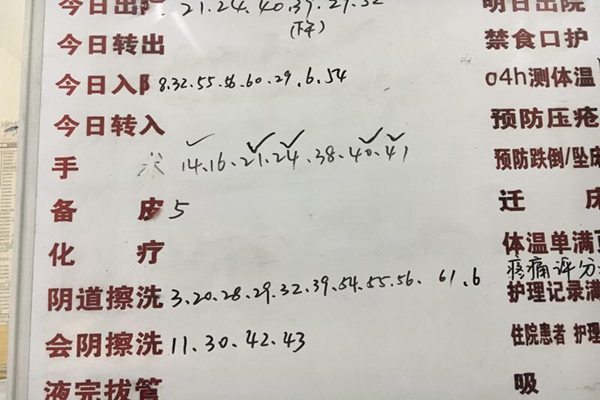 今日出院 21.24.40.39.29.52 明日出院
今日转出 禁食口护
今日入 8.32.55.56.60.29.6.54 q4h测体温
今日转入 预防压疮
手 术 14.16.21.24.38.40.41 预防跌倒/坠床
备 皮 5 迁 床
化 疗 体温单满
疼痛评分
阴道擦洗 3.20.28.29.32.39.54.55.56. 61.6 护理记录满
会阴擦洗 11.30.42.43 住院患者 护理
液完拔管 吸